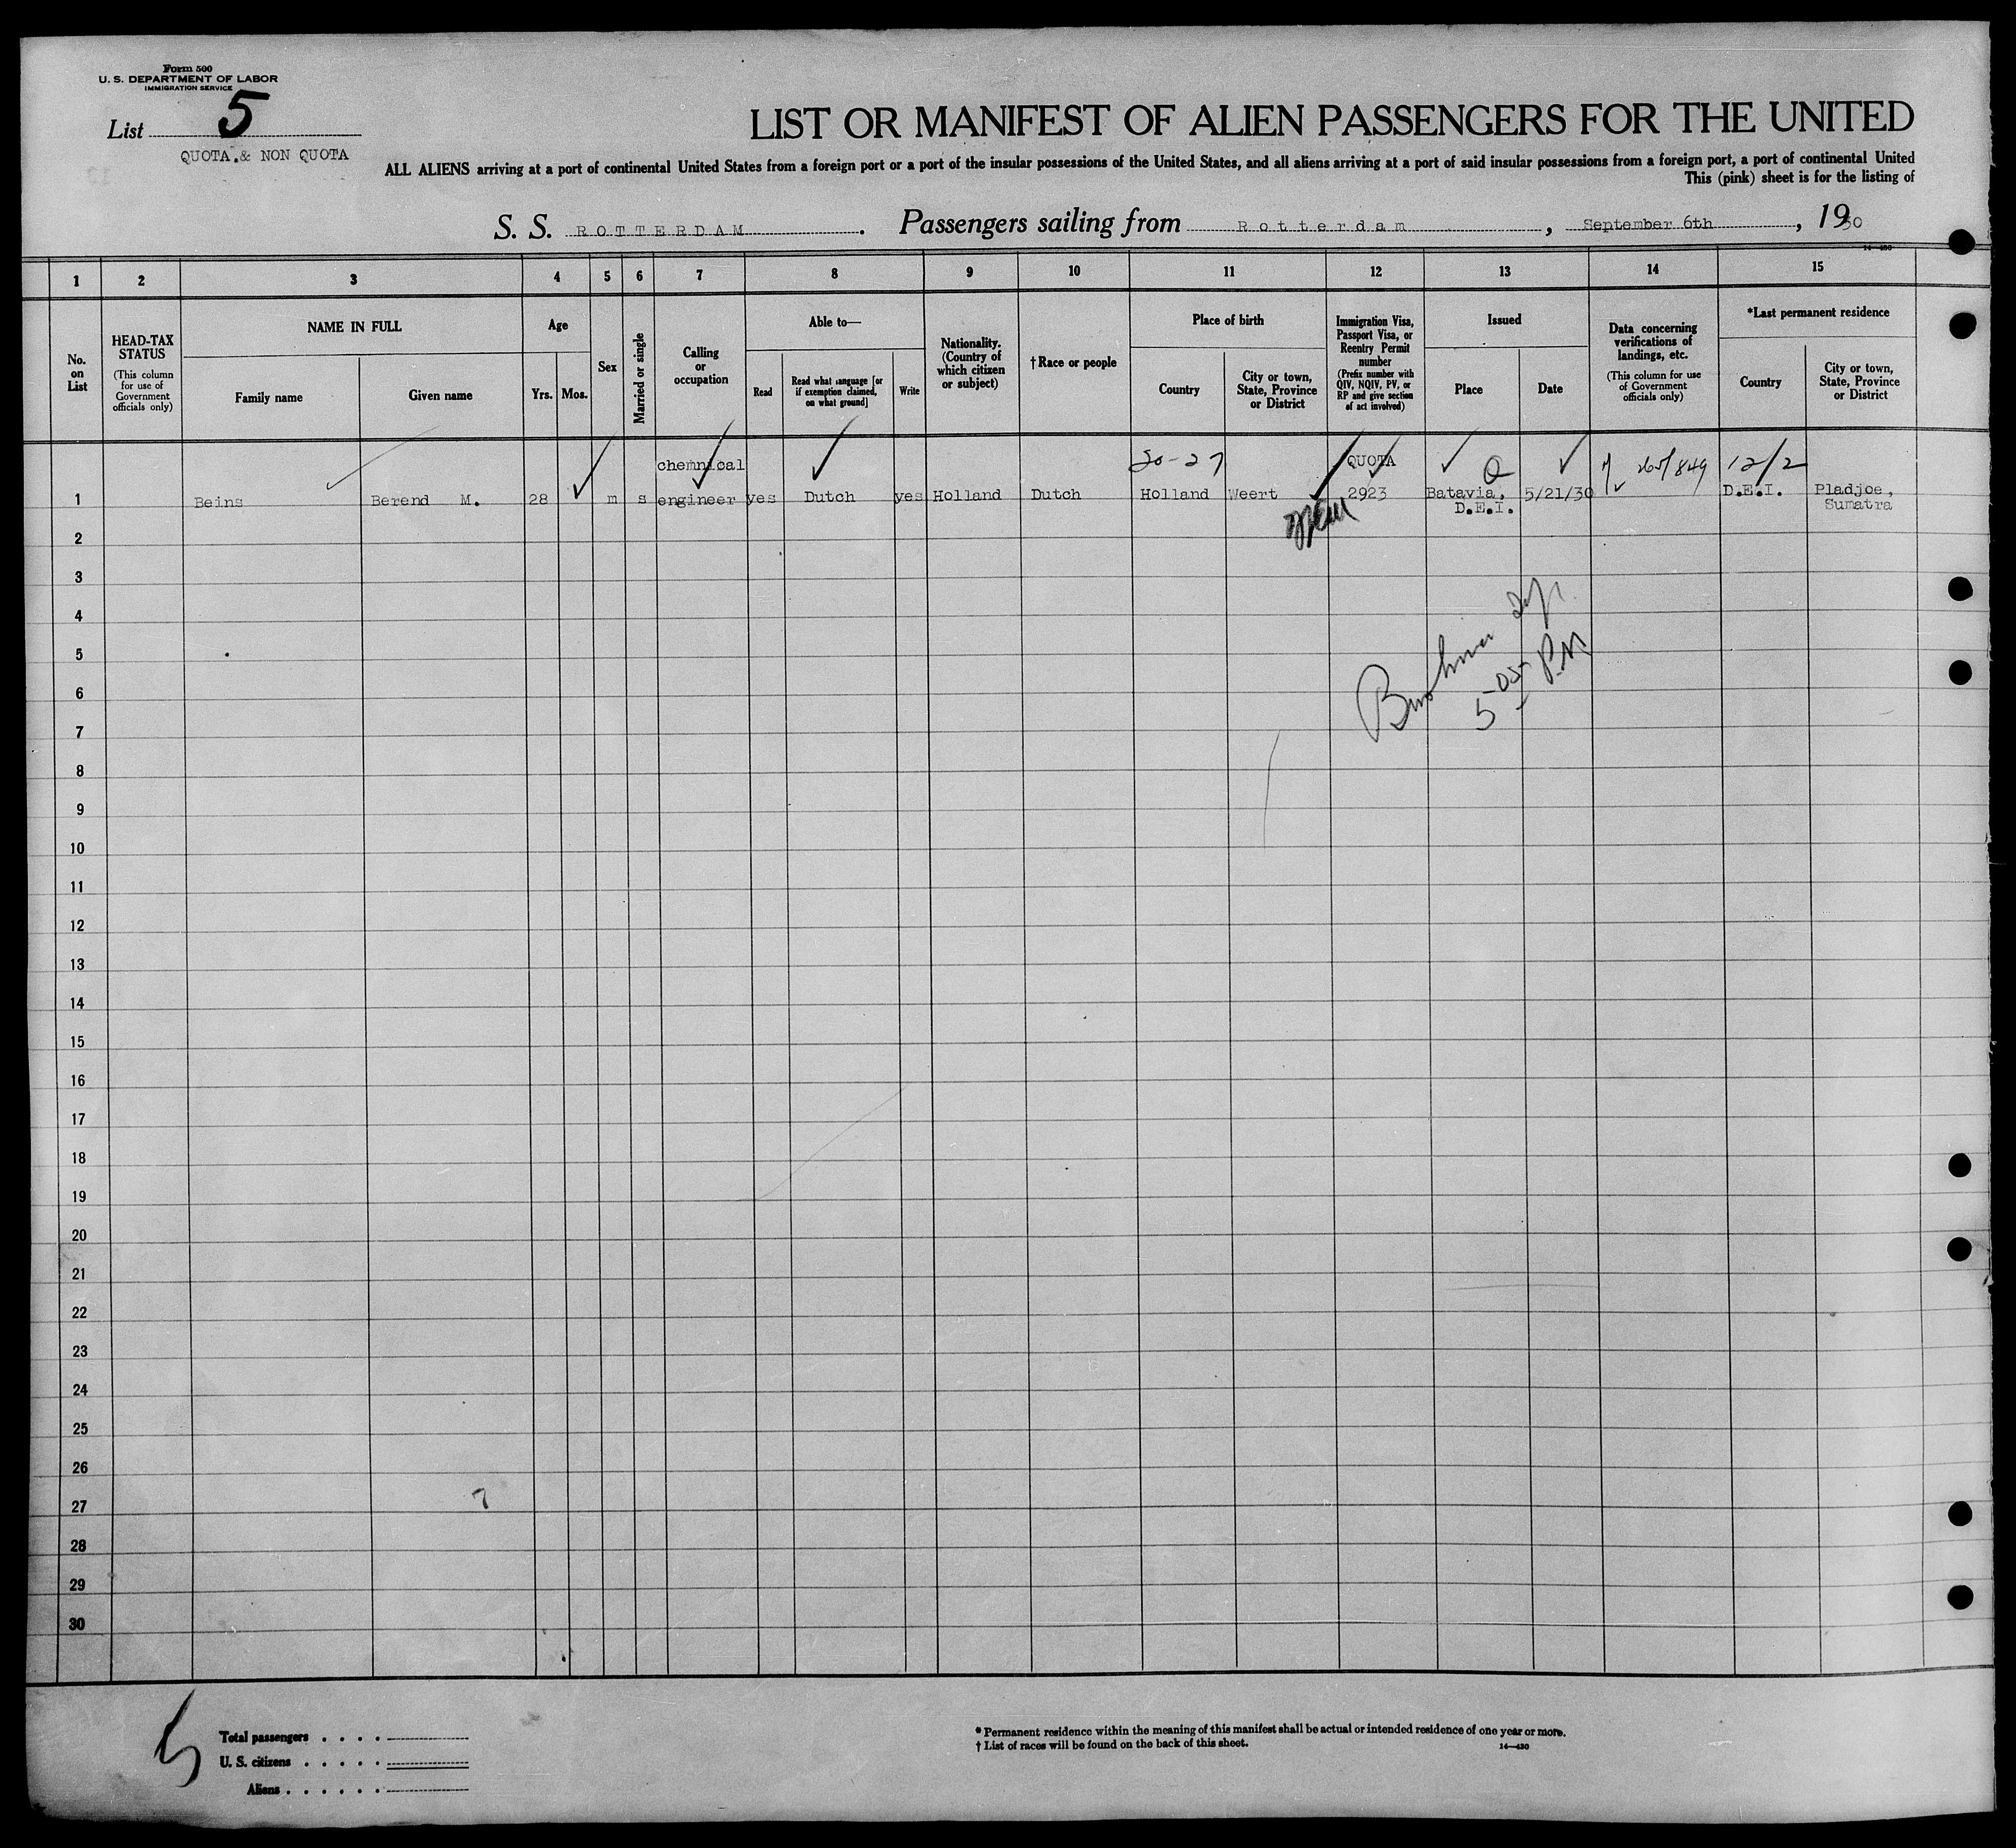 Form 500
U. S. DEPARTMENT OF LABOR
IMMIGRATION SERVICE
List 5
QUOTA & NON QUOTA
LIST OR MANIFEST OF ALIEN PASSENGERS FOR THE UNITED
ALL ALIENS arriving at a port of continental United States from a foreign port or a port of the insular possessions of the United States, and all aliens arriving at a port of said insular possessions from a foreign port, a port of continental United
This (pink) sheet is for the listing of
S. S. ROTTERDAM. Passengers sailing from Rotterdam, September 6th, 1930
14—480
1 2 3 4 5 6 7 8 9 10 11 12 13 14 15
No. on List
HEAD-TAX STATUS
(This column for use of Government officials only)
NAME IN FULL
Family name
Given name
Age
Yrs. Mos.
Sex
Married or single
Calling or occupation
Able to—
Read
Read what language [or if exemption claimed, on what ground]
Write
Nationality. (Country of which citizen or subject)
† Race or people
Place of birth
Country
City or town, State, Province or District
Immigration Visa, Passport Visa, or Reentry Permit number
(Prefix number with QIV, NQIV, PV, or RP and give section of act involved)
Issued
Place
Date
Data concerning verifications of landings, etc.
(This column for use of Government officials only)
*Last permanent residence
Country
City or town, State, Province or District
chemnical 20-27 QUOTA Q 265/849 12/2
1 Beins Berend M. 28 m s engineer yes Dutch yes Holland Dutch Holland Weert 2923 Batavia, 5/21/30 D.E.I. Pladjoe,
D.E.I. Sumatra
2
3
4
5
6
5 05 PM
7
8
9
10
11
12
13
14
15
16
17
18
19
20
21
22
23
24
25
26
27
28
29
30
Total passengers . . . .
U. S. citizens . . . . .
Aliens . . . . . .
* Permanent residence within the meaning of this manifest shall be actual or intended residence of one year or more.
† List of races will be found on the back of this sheet.
14—480